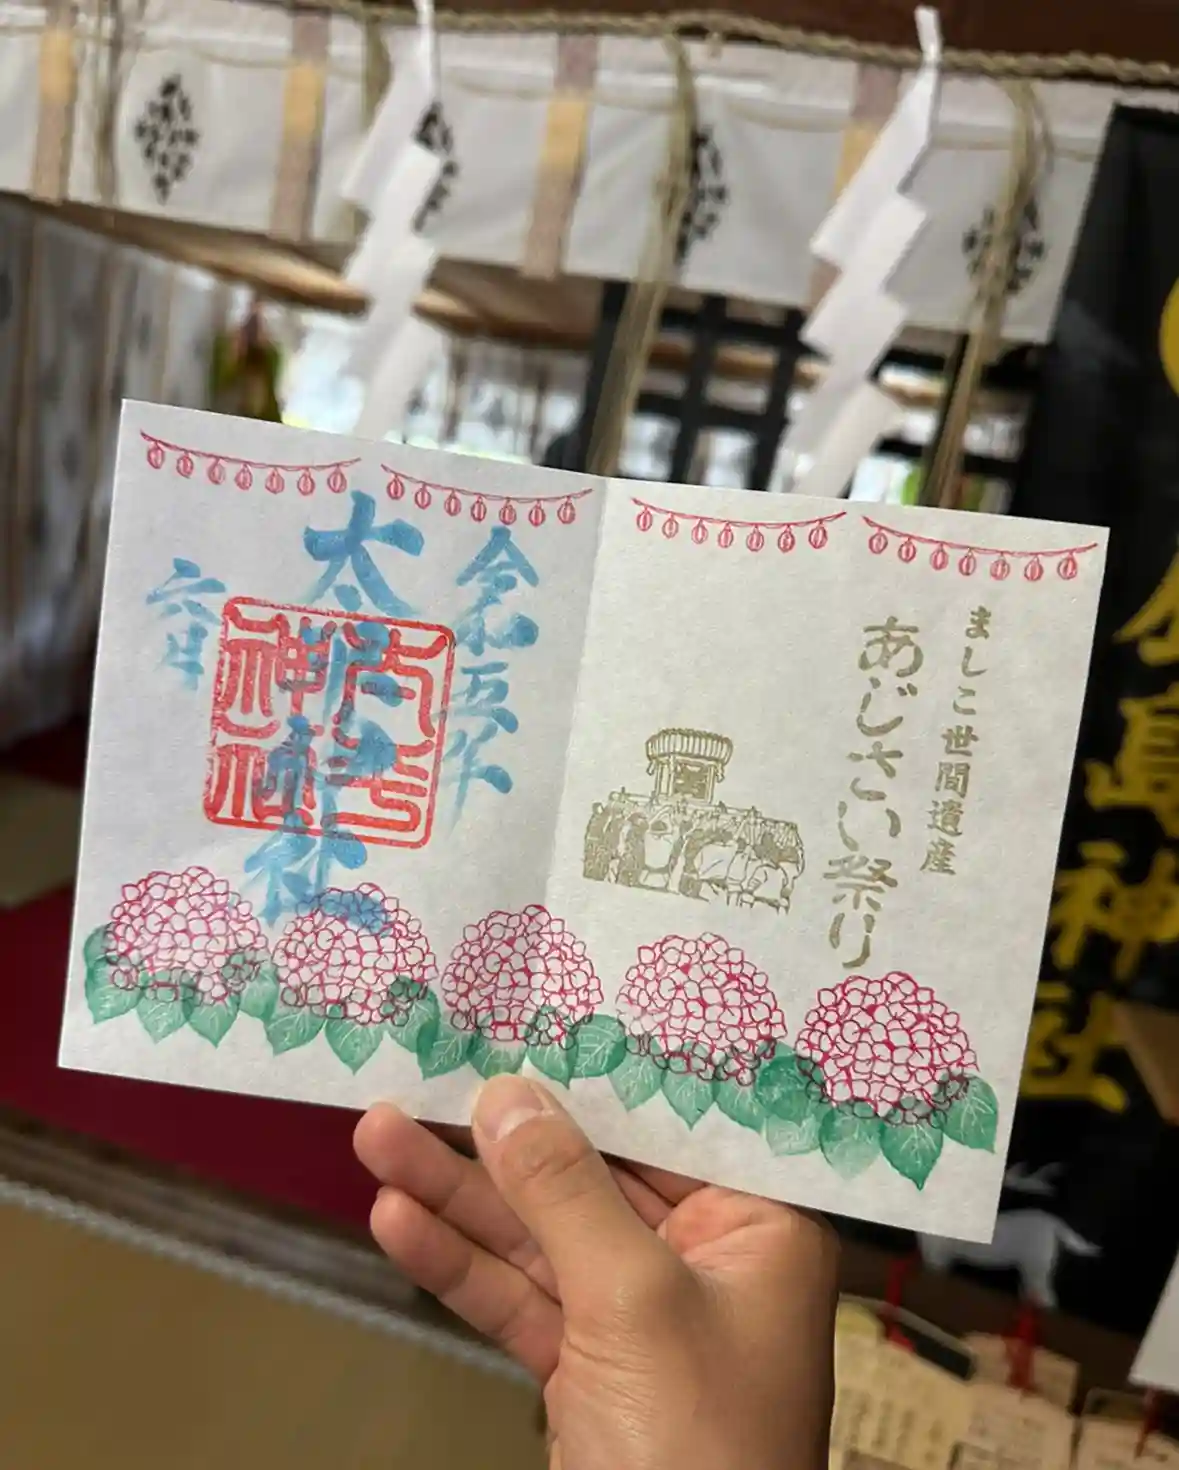 ましこ世間遺産
あじさい祭り
令和五年
太平神社
六月
島神社